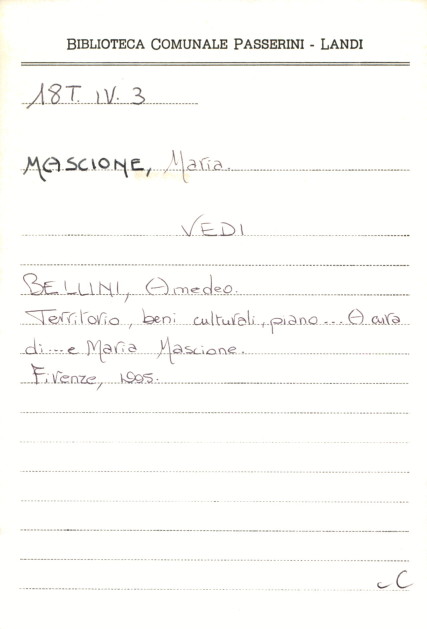 BIBLIOTECA COMUNALE PASSERINI - LANDI
18T. IV. 3
MASCIONE, Maria.
VEDI
BELLINI, Amedeo.
Territorio, beni culturali, piano... A cura
di... e Maria Mascione.
Firenze,
C